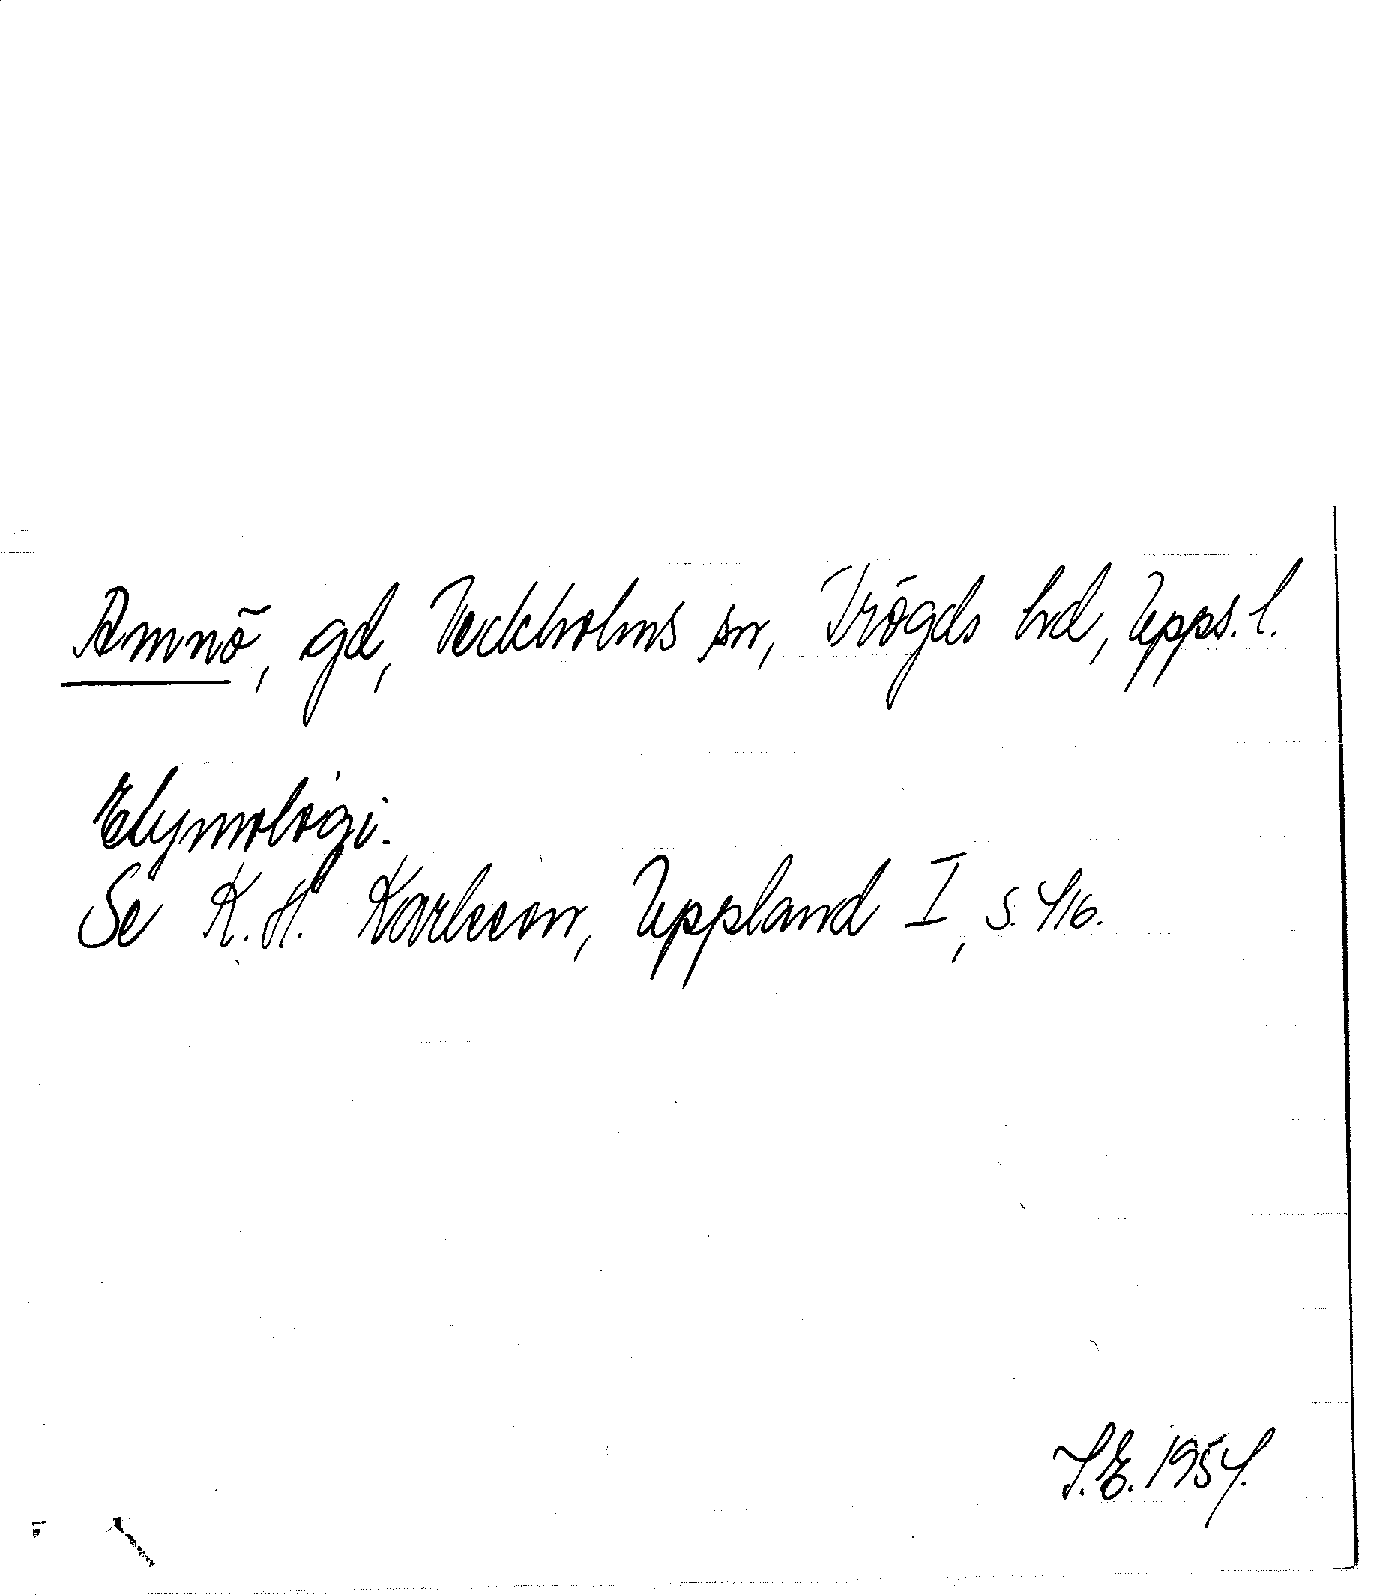 Amnö, gd, Veckholms sn, Trögds hd, Upps. l.
Etymologi.
Se K. H. Karlsson, Uppland I, s. 416.
I.E. 1954.